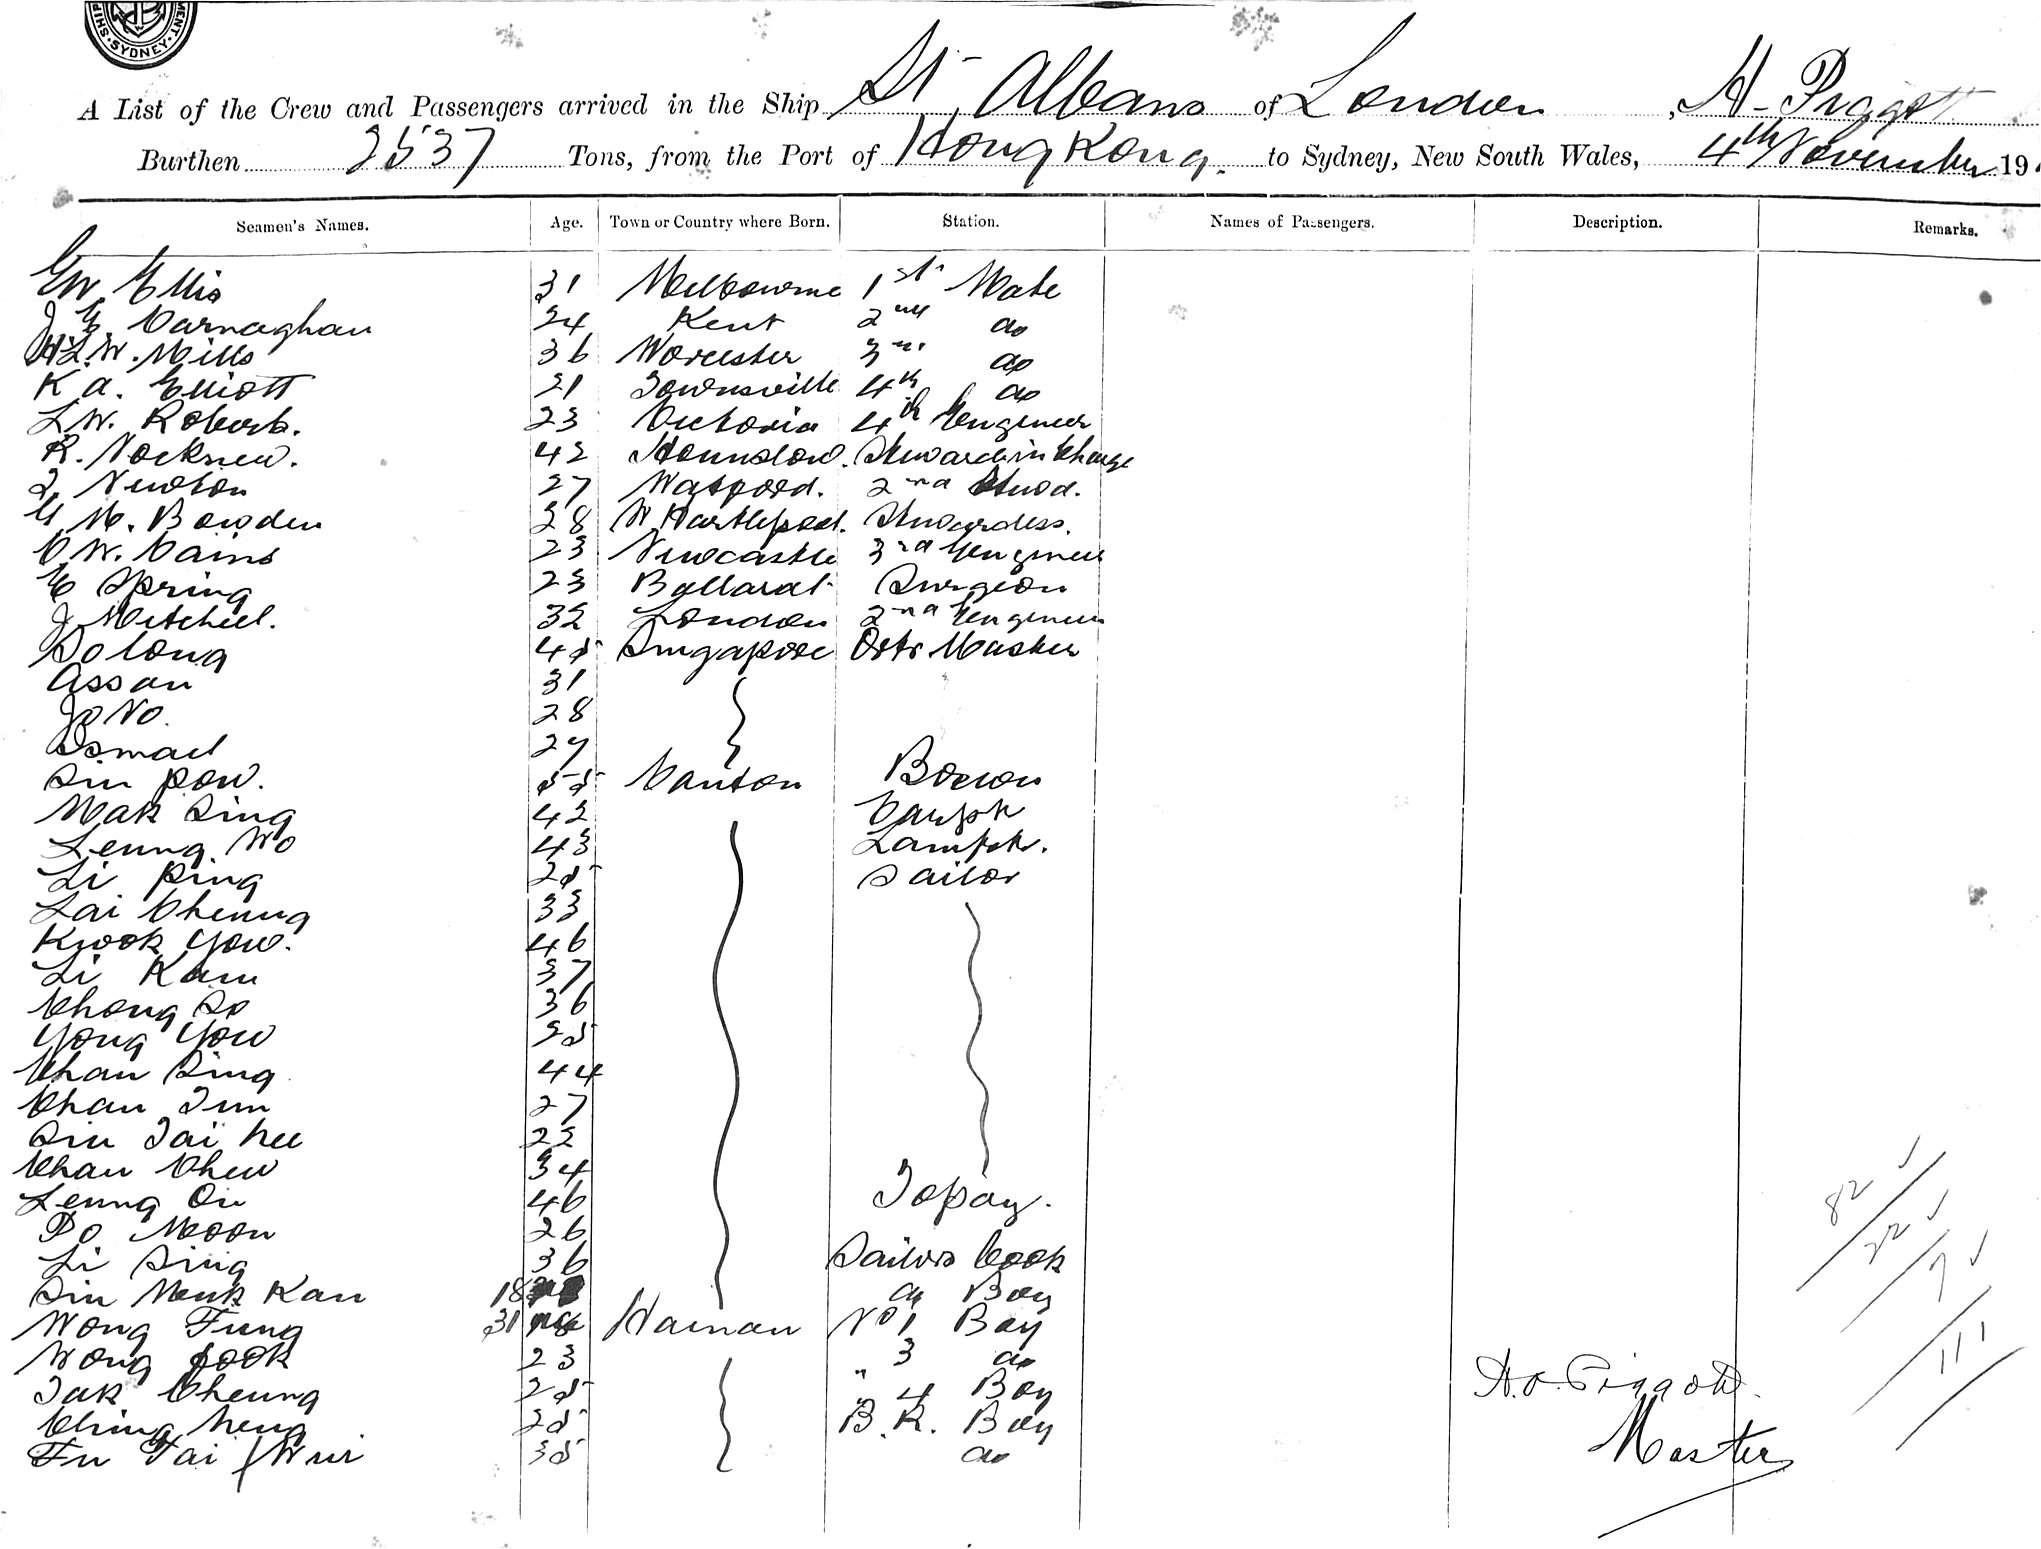 SHIP MENT · SYDNEY ·
A List of the Crew and Passengers arrived in the Ship St. Albans of London, H- Piggott
Burthen 2537 Tons, from the Port of Hong Kong. to Sydney, New South Wales, 4th November 19
Seamen's Names. Age. Town or Country where Born. Station. Names of Passengers. Description. Remarks.
GW Ellis 31 Melbourne 1st Mate
J G. Carnaghan 24 Kent 2nd do
H L.W. Mills 36 Worcester 3rd do
K a. Elliott 21 Townsville 4th do
L.W. Roberts. 23 Victoria 4th Engineer
R. 42 Hounslow. Steward in Charge
J. Newton 27 Watford. 2nd Stwd.
M. Bowden 38 W Hartlepool. Stewardess.
C W. Cains 23 Newcastle 3rd Engineer
E Spring 23 Ballarat Surgeon
J Mitchell. 32 London 2nd Engineer
Solong 45 Singapore Qrtr Master
Assan 31
Jo No. 28
Ismael 27
Sin Pow. 55 Canton Bosun
Mak Sing 42 Carptr
Leung Wo 43 Lamptr.
Li Ping 25 Sailor
Lai Cheung 33
Kwok Yow. 46
Li Kam 37
Chong So 36
Yong Yow 35
Chan Sing 44
Chan Tim 27
Siu Tai hee 22
Chan Chew 34
Leung On 46 Topay.
Po Moon 26
Li Sing 36 Sailors Cook
Siu Kan 18 do Boy
Wong Fung 31 Hainan No 1 Boy
Wong Fook 23 " 3 do
Tak Cheung 25 " 4 Boy
Ching heng 25 B.R. Boy
Fu Tai / Wui 35 do
82
22
7
111
H.O. Piggott.
Master